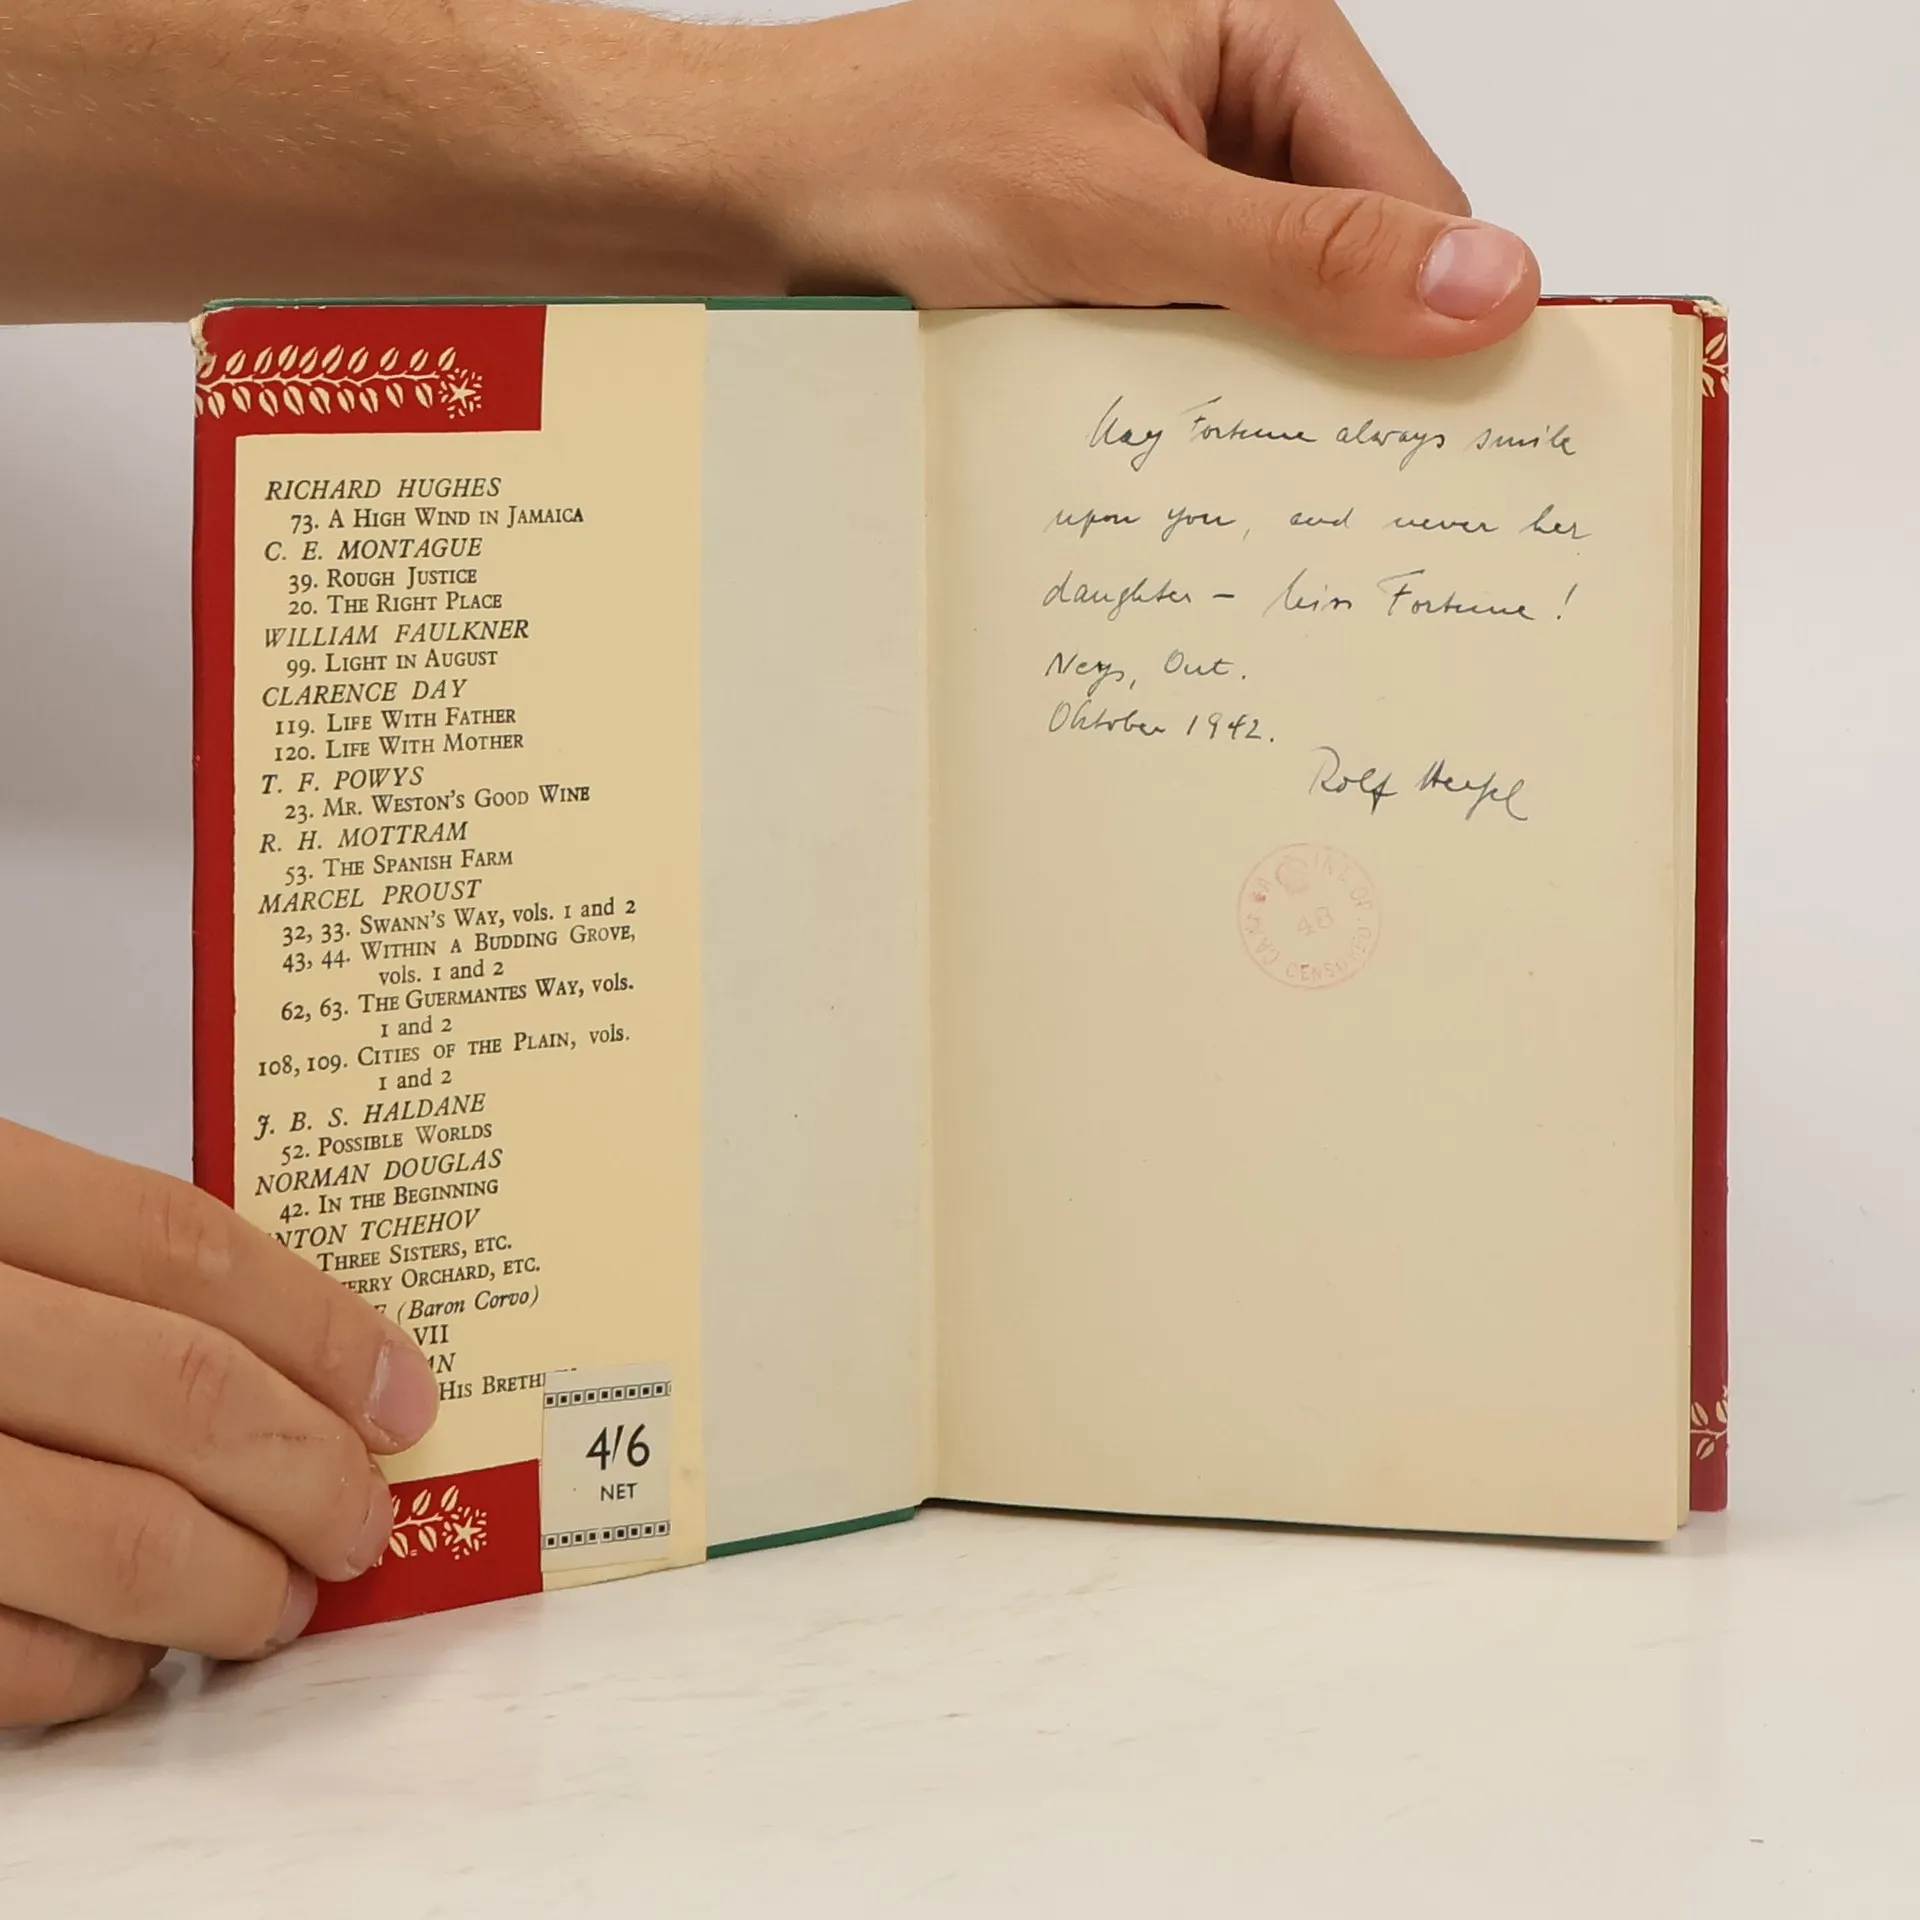 RICHARD HUGHES
73. A HIGH WIND IN JAMAICA
C. E. MONTAGUE
39. ROUGH JUSTICE
20. THE RIGHT PLACE
WILLIAM FAULKNER
99. LIGHT IN AUGUST
CLARENCE DAY
119. LIFE WITH FATHER
120. LIFE WITH MOTHER
T. F. POWYS
23. MR. WESTON'S GOOD WINE
R. H. MOTTRAM
53. THE SPANISH FARM
MARCEL PROUST
32, 33. SWANN'S WAY, vols. 1 and 2
43, 44. WITHIN A BUDDING GROVE,
vols. 1 and 2
62, 63. THE GUERMANTES WAY, vols.
1 and 2
108, 109. CITIES OF THE PLAIN, vols.
1 and 2
J. B. S. HALDANE
52. POSSIBLE WORLDS
NORMAN DOUGLAS
42. IN THE BEGINNING
TCHEHOV
THREE SISTERS, ETC.
ORCHARD, ETC.
(Baron Corvo)
VII
HIS
4/6
NET
May Fortune always smile
upon you, and never her
daughter – Miss Fortune!
Neys, Ont.
Oktober 1942.
Rolf
INT. OP.
48
CENSORED